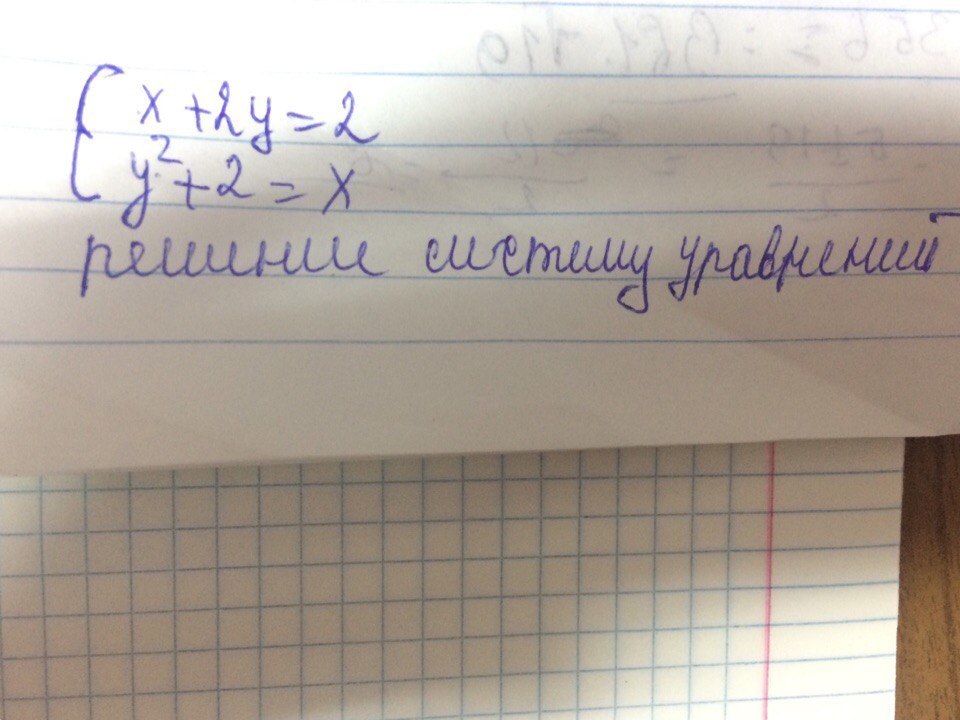 x + 2y = 2
y² + 2 = x
решение систему уравнений